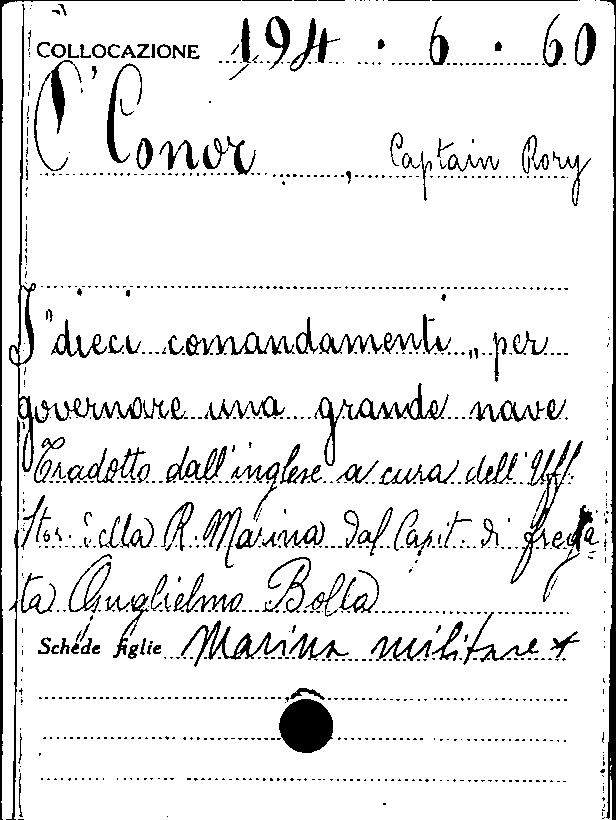 COLLOCAZIONE 194 . 6 . 60
O'Conor, Captain Rory
I "dieci comandamenti" per
governare una grande nave
Tradotto dall'inglese a cura dell'Uff.
Stor. della R. Marina dal Capit. di frega
ta Guglielmo Bolla
Schede figlie Marina militare *